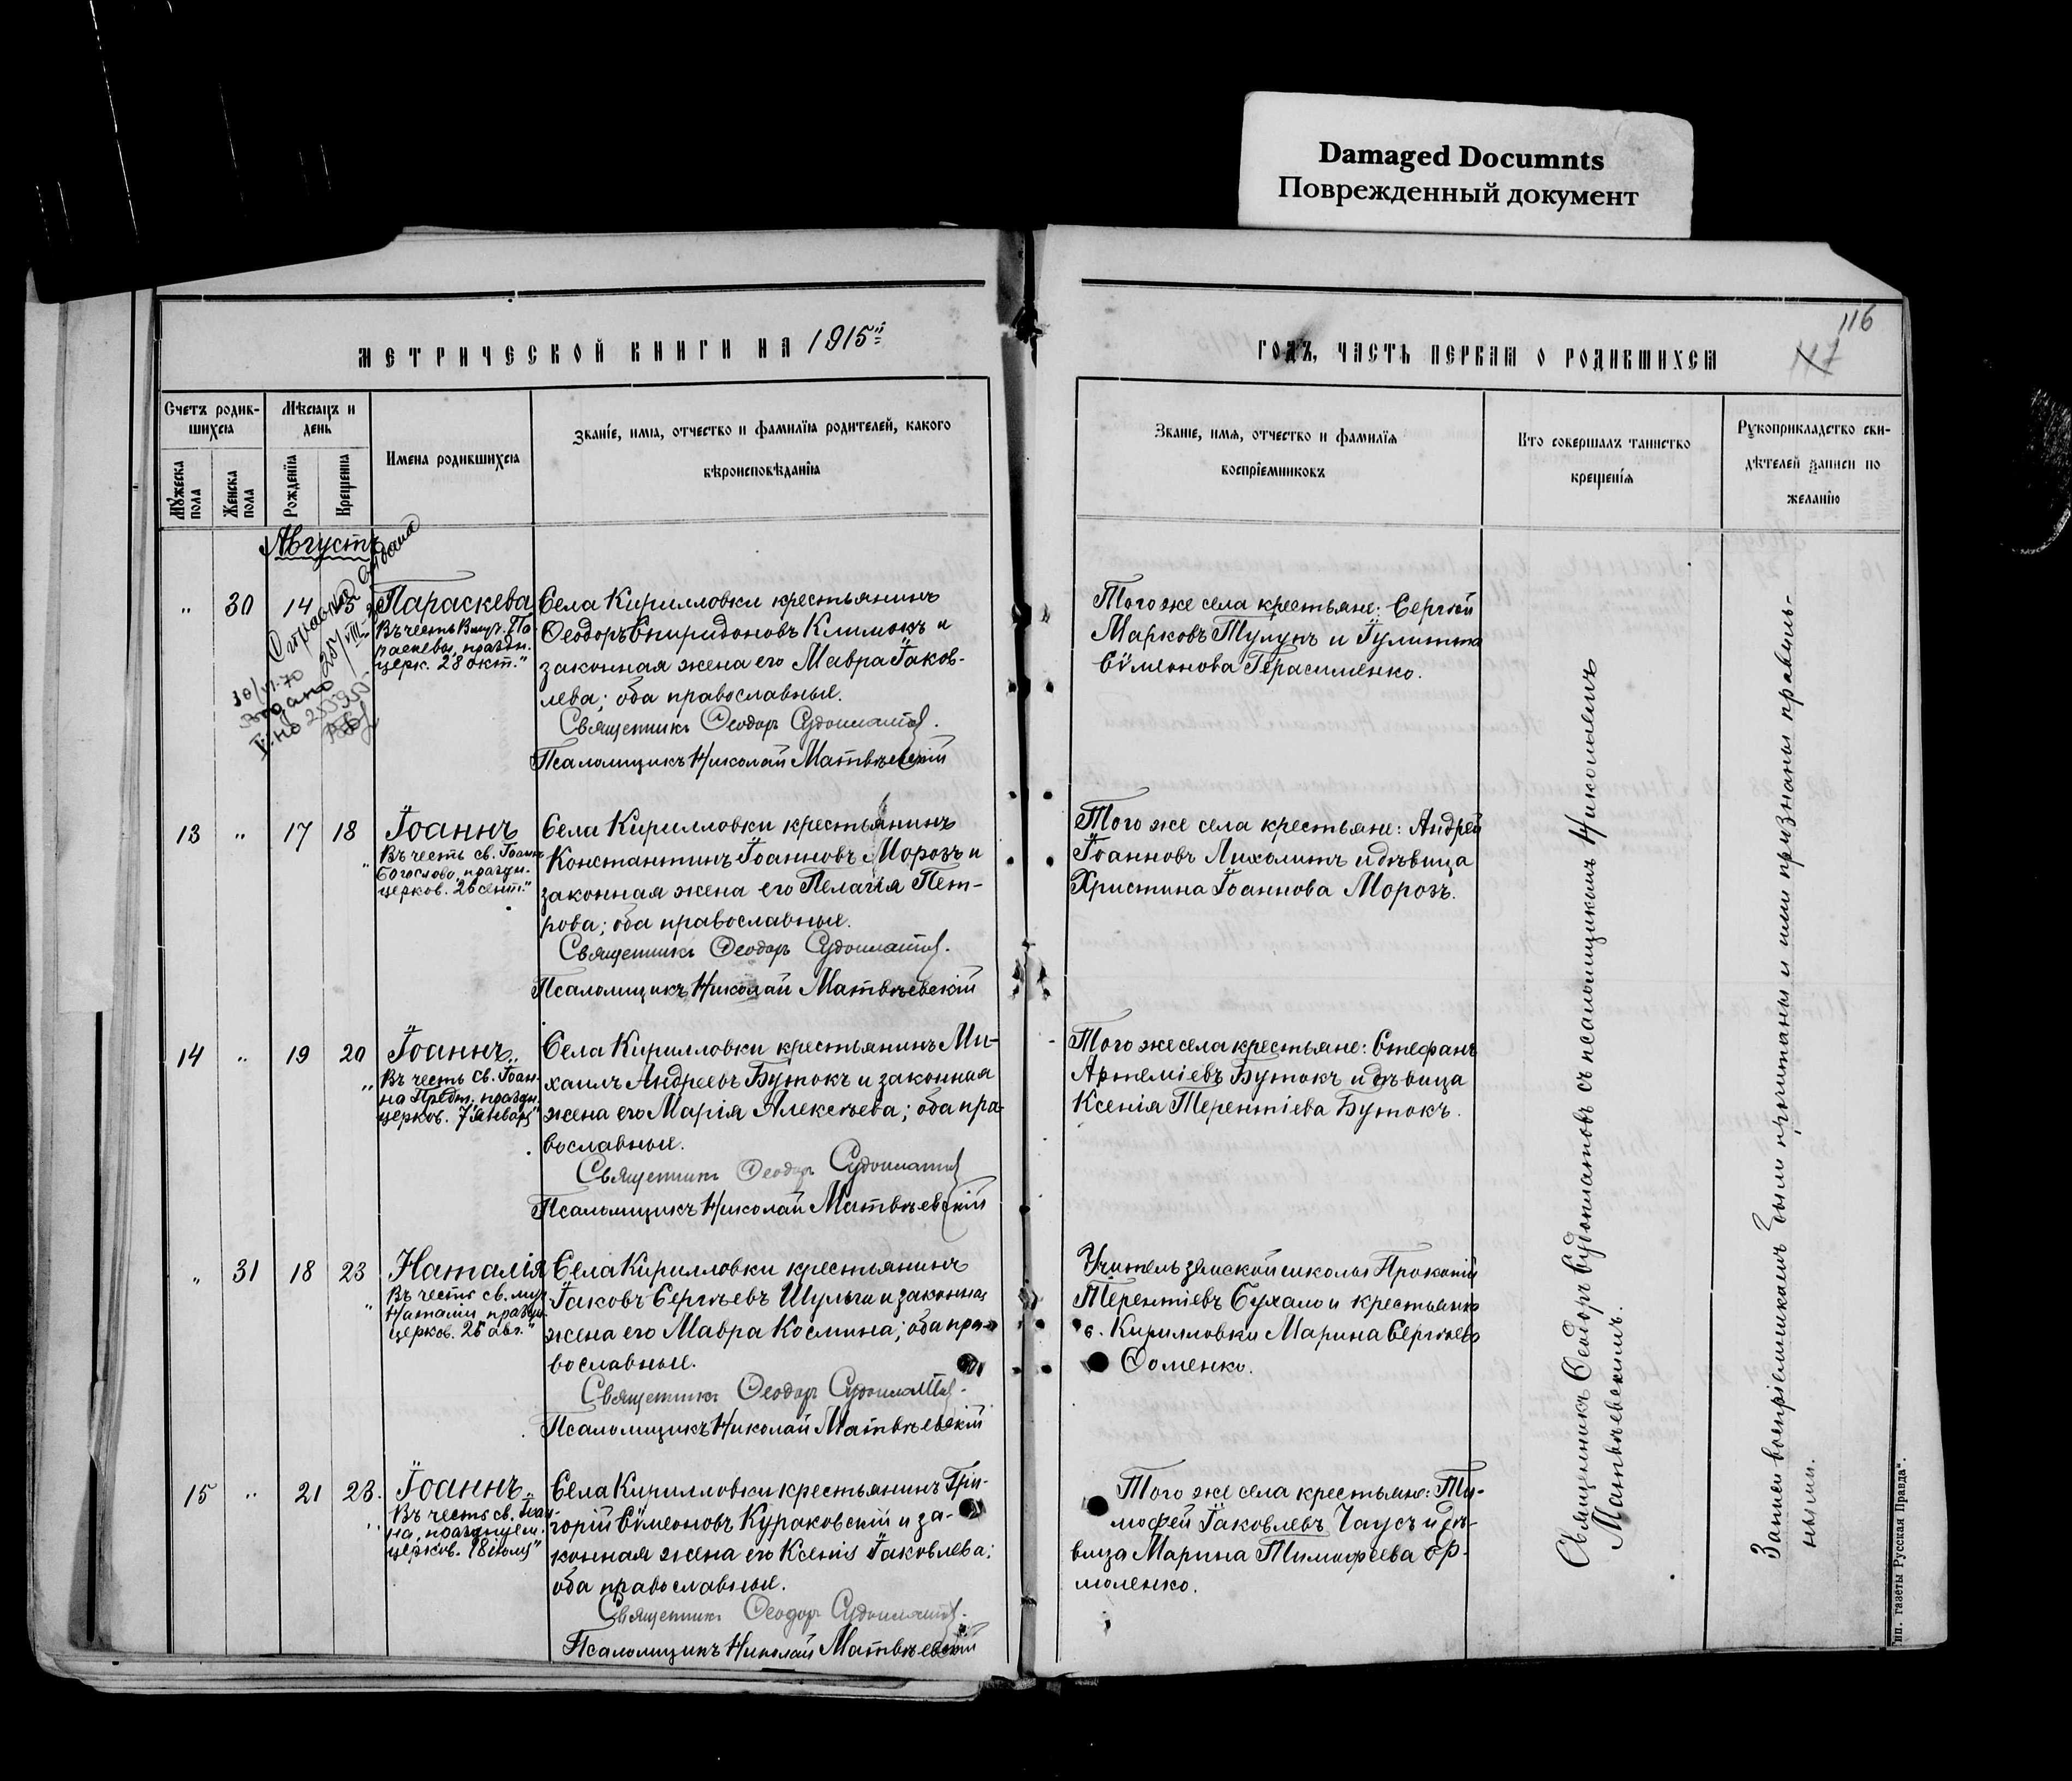 Damaged Documnts
Поврежденный документ
МЕТРИЧЕСКОЙ КНИГИ НА 1915й
ГОДЪ, ЧАСТЬ ПЕРВАЯ О РОДИВШИХСЯ
116
117
Счетъ родив-
шихся
Мужеска пола
Женска пола
Мѣсяцъ и
день
Рожденїя
Крещенїя
Имена родившихся
Званїе, имя, отчество и фамилїя родителей, какого
вѣроисповѣданїя
Званїе, имя, отчество и фамилїя
воспрїемниковъ
Кто совершалъ таинство
крещенїя
Рукоприкладство сви-
дѣтелей записи по
желанїю
Августъ
" 30 14 15
Параскева
Въ честь Вмуч. Па-
раскевы, праздн.
церк. 28 окт."
Села Кирилловки крестьянинъ
Ѳеодоръ Спиридоновъ Климокъ и
законная жена его Мавра Іаков-
лева; оба православные.
Священникъ Ѳеодоръ Судоплатов.
Псаломщикъ Николай Матвѣевскій
Того же села крестьяне: Сергѣй
Марковъ Тулупъ и Іулитта
Сѵмеонова Герасименко.
Справка выдана
10/VI-70
Выдано
13 " 17 18
Іоаннъ
Въ честь св. Іоанна
Богослова, праздн.
церков. 26 сент."
Села Кирилловки крестьянинъ
Константинъ Іоанновъ Морозъ и
законная жена его Пелагія Пет-
рова; оба православные.
Священникъ Ѳеодоръ Судоплатов.
Псаломщикъ Николай Матвѣевскій
Того же села крестьяне: Андрей
Іоанновъ Лихолитъ и дѣвица
Христина Іоаннова Морозъ.
14 " 19 20
Іоаннъ
Въ честь св. Іоан-
на Предт., праздн.
церков. 7 января"
Села Кирилловки крестьянинъ Ми-
хаилъ Андреевъ Бутокъ и законная
жена его Марія Алексѣева; оба пра-
вославные.
Священникъ Ѳеодоръ Судоплатов
Псаломщикъ Николай Матвѣевскій
Того же села крестьяне: Стефанъ
Артеміевъ Бутокъ и дѣвица
Ксенія Терентіева Бутокъ.
" 31 18 23
Наталія
Въ честь св. муч.
Наталіи, праздн.
церков. 26 авг."
Села Кирилловки крестьянинъ
Іаковъ Сергѣевъ Шульга и законная
жена его Мавра Космина; оба пра-
вославные.
Священникъ Ѳеодоръ Судоплатов.
Псаломщикъ Николай Матвѣевскій
Учитель земской школы Прокопій
Терентіевъ Сухало и крестьянка
с. Кирилловки Марина Сергѣева
Ѳоменко.
15 " 21 23.
Іоаннъ
Въ честь св. Іоан-
на, празднуем.
церков. 18 іюля"
Села Кирилловки крестьянинъ Гри-
горій Сѵмеоновъ Кураковскій и за-
конная жена его Ксенія Іаковлева;
оба православные.
Священникъ Ѳеодоръ Судоплатов.
Псаломщикъ Николай Матвѣевскій
Того же села крестьяне: Ти-
моѳей Іаковлевъ Чаусъ и дѣ-
вица Марина Тимоѳеева Ер-
моленко.
Священникъ Ѳеодоръ Судоплатовъ съ псаломщикомъ Николаемъ
Матвѣевскимъ.
Записи воспріемникамъ были прочитаны и ими признаны правиль-
ными.
Тип. газеты Русская Правда".